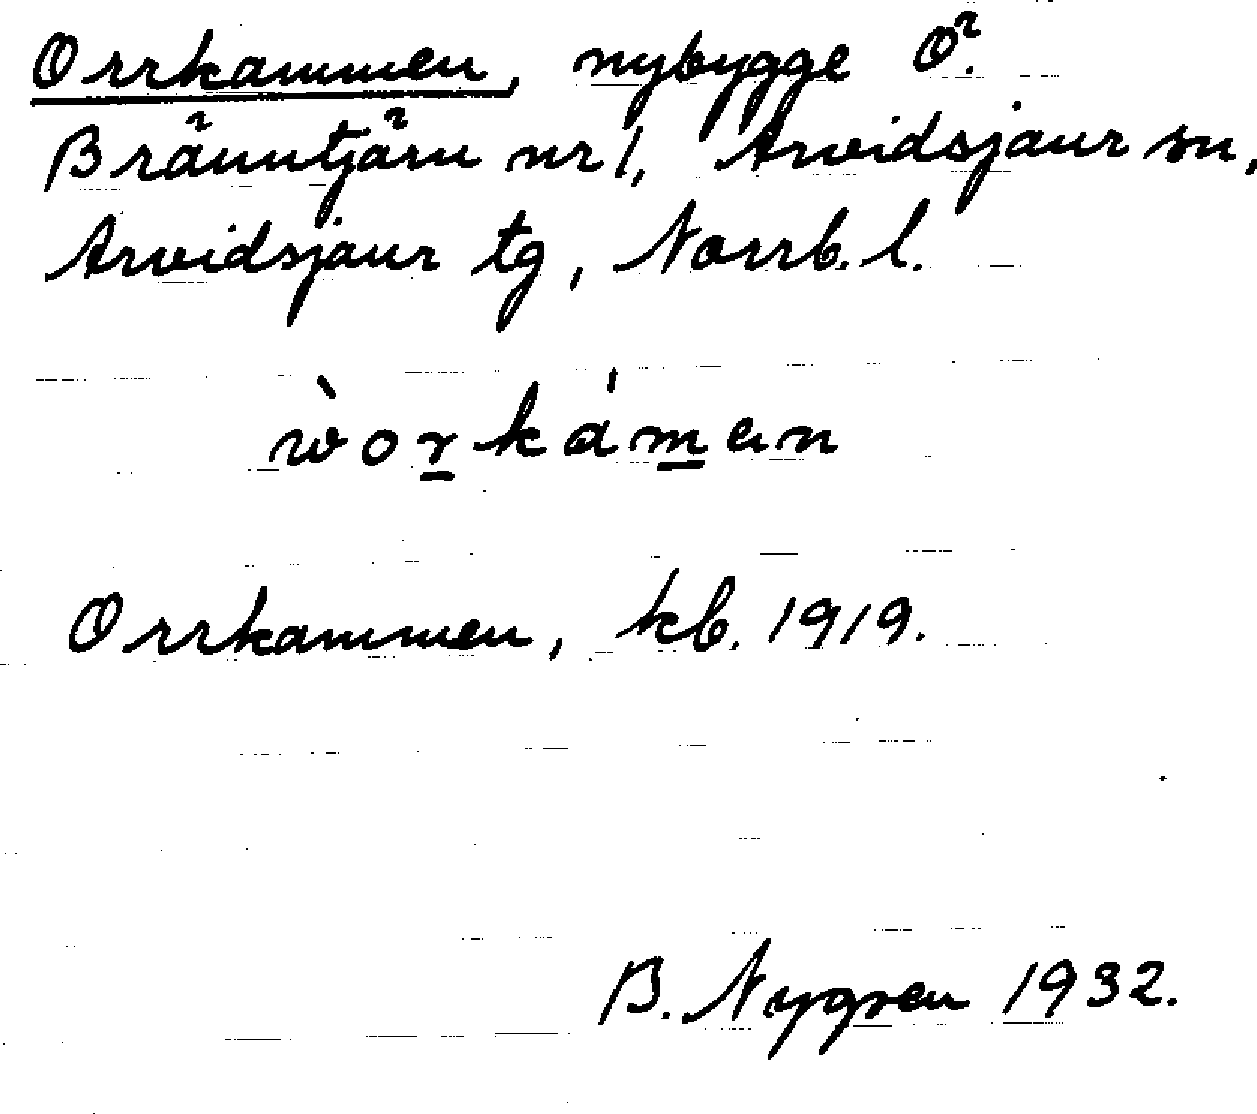 Orrkammen, nybygge Ö.
Bränntjärn nr 1, Arvidsjaur sn,
Arvidsjaur tg, Norrb. l.
ẁorkámen
Orrkammen, kb. 1919.
B. Nygren 1932.